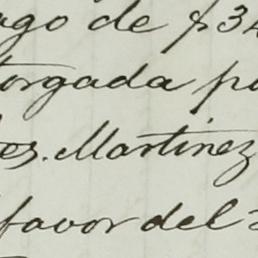 ago de $34
torgada po
es. Martinez
favor del